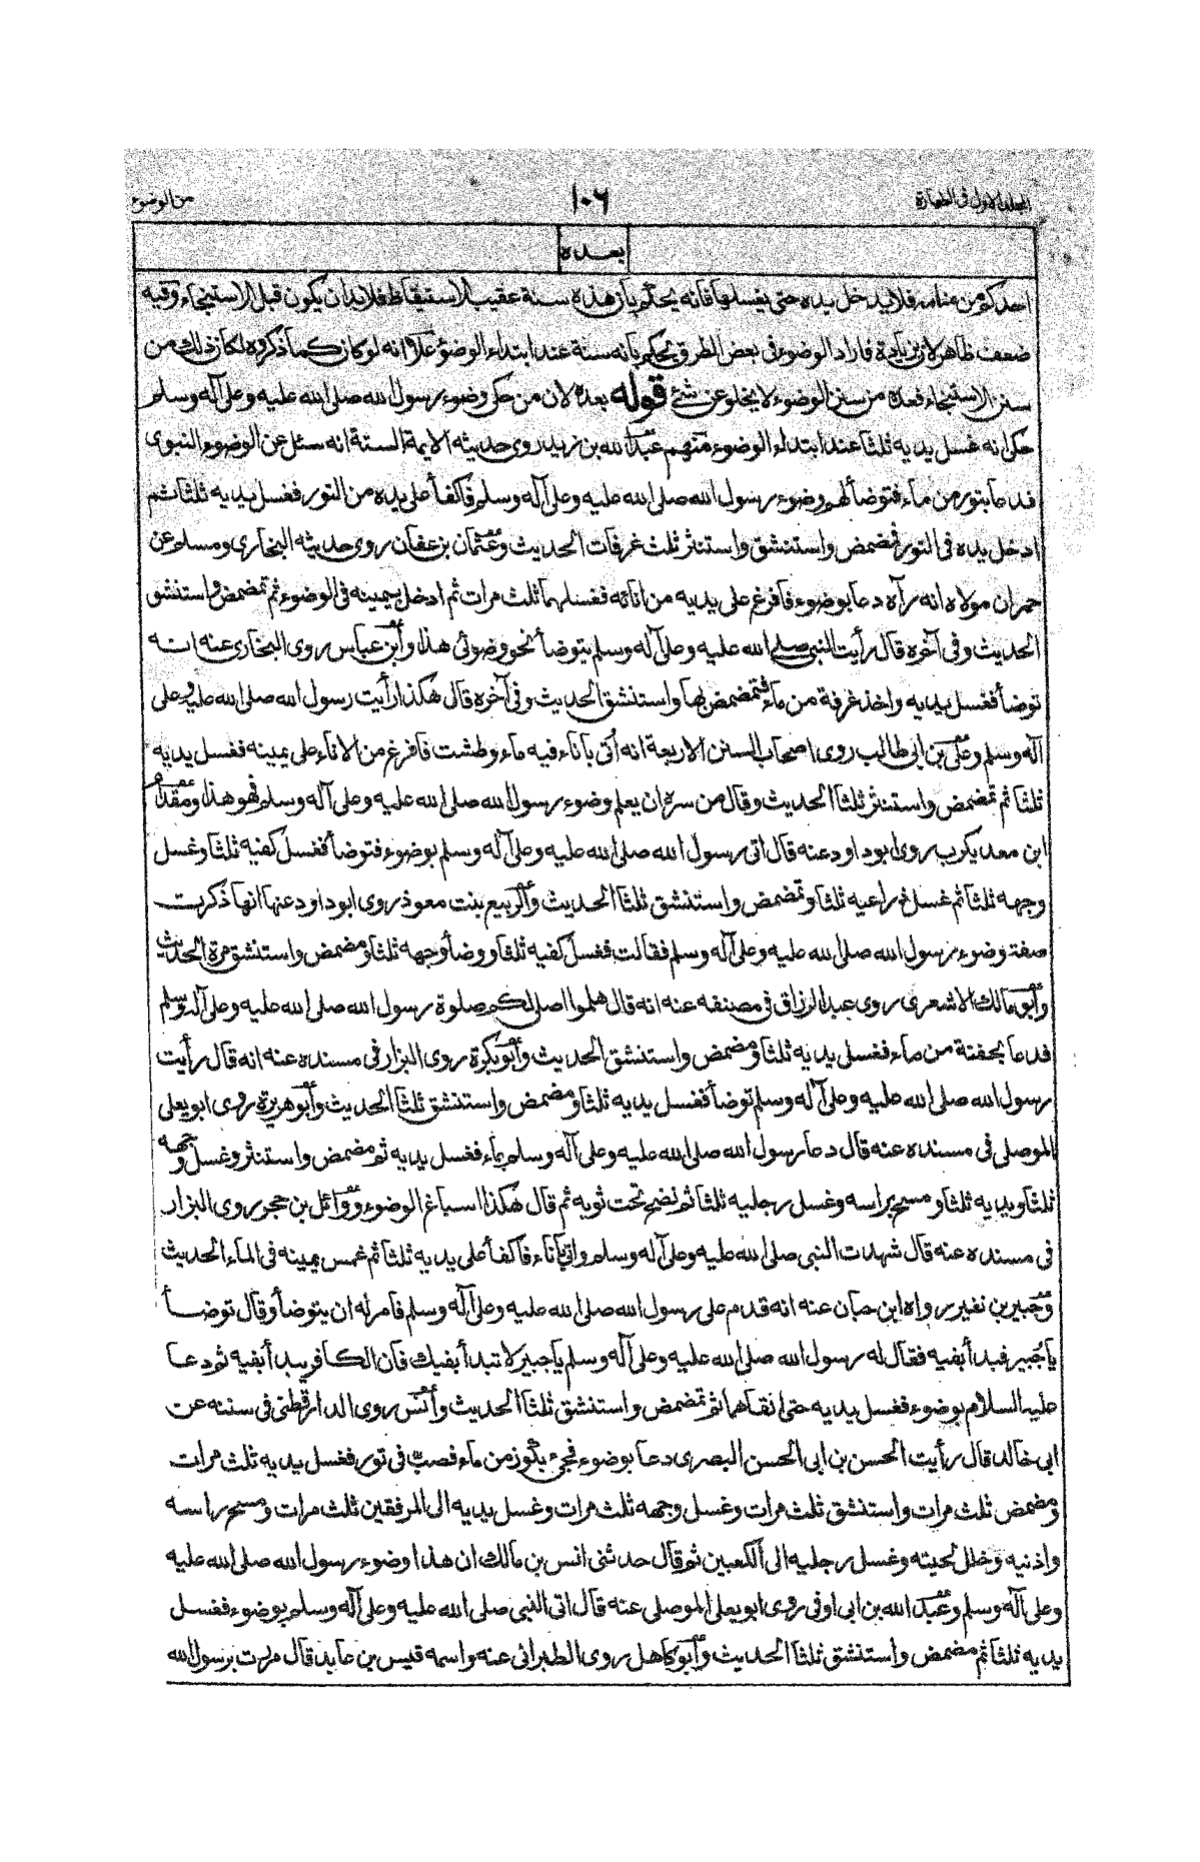 المجلد الاول فى الطهارة
١٠٦
من الوضوء
بعده
احدكم من منامه فلا يدخل يده حتى يغسلها فانه يحكم بان هذه سنة عقيب الاستيقاظ فلا بد ان يكون قبل الاستنجاء وفيه
ضعف ظاهر لان زيادة فاراد الوضوء فى بعض الطرق يحكم بانه سنة عند ابتداء الوضوء علا انه لو كان كما ذكروه لكان ذلك من
سنن الاستنجاء فعده من سنن الوضوء لا يخلو عن شئ قوله بعده لان من حكى وضوء رسول الله صلى الله عليه وعلى آله وسلم
حكى انه غسل يديه ثلثا عند ابتداء الوضوء منهم عبد الله بن زيد روى حديثه الايمة الستة انه سئل عن الوضوء النبوى
فدعا بتور من ماء فتوضأ لهم وضوء رسول الله صلى الله عليه وعلى آله وسلم فاكفأ على يده من التور فغسل يديه ثلثا ثم
ادخل يده فى التور فمضمض واستنشق واستنثر ثلث غرفات الحديث وعثمان بن عفان روى حديثه البخارى ومسلم عن
حمران مولاه انه رآه دعا بوضوء فافرغ على يديه من انائه فغسلهما ثلث مرات ثم ادخل يمينه فى الوضوء ثم تمضمض واستنشق
الحديث وفى آخره قال رأيت النبى صلى الله عليه وعلى آله وسلم يتوضأ نحو وضوئى هذا وابن عباس روى البخارى عنه انه
توضأ فغسل يديه واخذ غرفة من ماء فتمضمض بها واستنشق الحديث وفى آخره قال هكذا رأيت رسول الله صلى الله عليه وعلى
آله وسلم وعلى بن ابى طالب روى اصحاب السنن الاربعة انه أتى باناء فيه ماء وطشت فافرغ من الاناء على يمينه فغسل يديه
ثلثا ثم تمضمض واستنثر ثلثا الحديث وقال من سره ان يعلم وضوء رسول الله صلى الله عليه وعلى آله وسلم فهو هذا ومقدام
ابن معديكرب روى ابو داود عنه قال اتى رسول الله صلى الله عليه وعلى آله وسلم بوضوء فتوضأ فغسل كفيه ثلثا وغسل
وجهه ثلثا ثم غسل ذراعيه ثلثا وتمضمض واستنشق ثلثا الحديث والربيع بنت معوذ روى ابو داود عنها انها ذكرت
صفة وضوء رسول الله صلى الله عليه وعلى آله وسلم فقالت فغسل كفيه ثلثا ووضأ وجهه ثلثا ومضمض واستنشق مرة الحديث
وابو مالك الاشعرى روى عبد الرزاق فى مصنفه عنه انه قال هلموا اصلى لكم صلوة رسول الله صلى الله عليه وعلى آله وسلم
فدعا بجفنة من ماء فغسل يديه ثلثا ومضمض واستنشق الحديث وابو بكرة روى البزار فى مسنده عنه انه قال رأيت
رسول الله صلى الله عليه وعلى آله وسلم توضأ فغسل يديه ثلثا ومضمض واستنشق ثلثا الحديث وابو هريرة روى ابو يعلى
الموصلى فى مسنده عنه قال دعا رسول الله صلى الله عليه وعلى آله وسلم بماء فغسل يديه ثم مضمض واستنثر وغسل وجهه
ثلثا ويديه ثلثا ومسح براسه وغسل رجليه ثلثا ثم نضح تحت ثوبه ثم قال هكذا اسباغ الوضوء ووائل بن حجر روى البزار
فى مسنده عنه قال شهدت النبى صلى الله عليه وعلى آله وسلم واتى باناء فاكفأ على يديه ثلثا ثم غمس يمينه فى الماء الحديث
وجبير بن نفير رواه ابن حبان عنه انه قدم على رسول الله صلى الله عليه وعلى آله وسلم فامر له ان يتوضأ وقال توضأ
يا جبير فبدأ بفيه فقال له رسول الله صلى الله عليه وعلى آله وسلم يا جبير لا تبدأ بفيك فان الكافر يبدأ بفيه ثم دعا
عليه السلام بوضوء فغسل يديه حتى انقاهما ثم تمضمض واستنشق ثلثا الحديث وأنس روى الدارقطنى فى سننه عن
ابى خالد قال رأيت الحسن بن ابى الحسن البصرى دعا بوضوء فجىء بكوز من ماء فصب فى تور فغسل يديه ثلث مرات
ومضمض ثلث مرات واستنشق ثلث مرات وغسل وجهه ثلث مرات وغسل يديه الى المرفقين ثلث مرات ومسح راسه
واذنيه وخلل لحيته وغسل رجليه الى الكعبين ثم قال حدثنى انس بن مالك ان هذا وضوء رسول الله صلى الله عليه
وعلى آله وسلم وعبد الله بن ابى اوفى روى ابو يعلى الموصلى عنه قال اتى النبى صلى الله عليه وعلى آله وسلم بوضوء فغسل
يديه ثلثا ثم مضمض واستنشق ثلثا الحديث وابو كاهل روى الطبرانى عنه واسمه قيس بن عايد قال مررت برسول الله